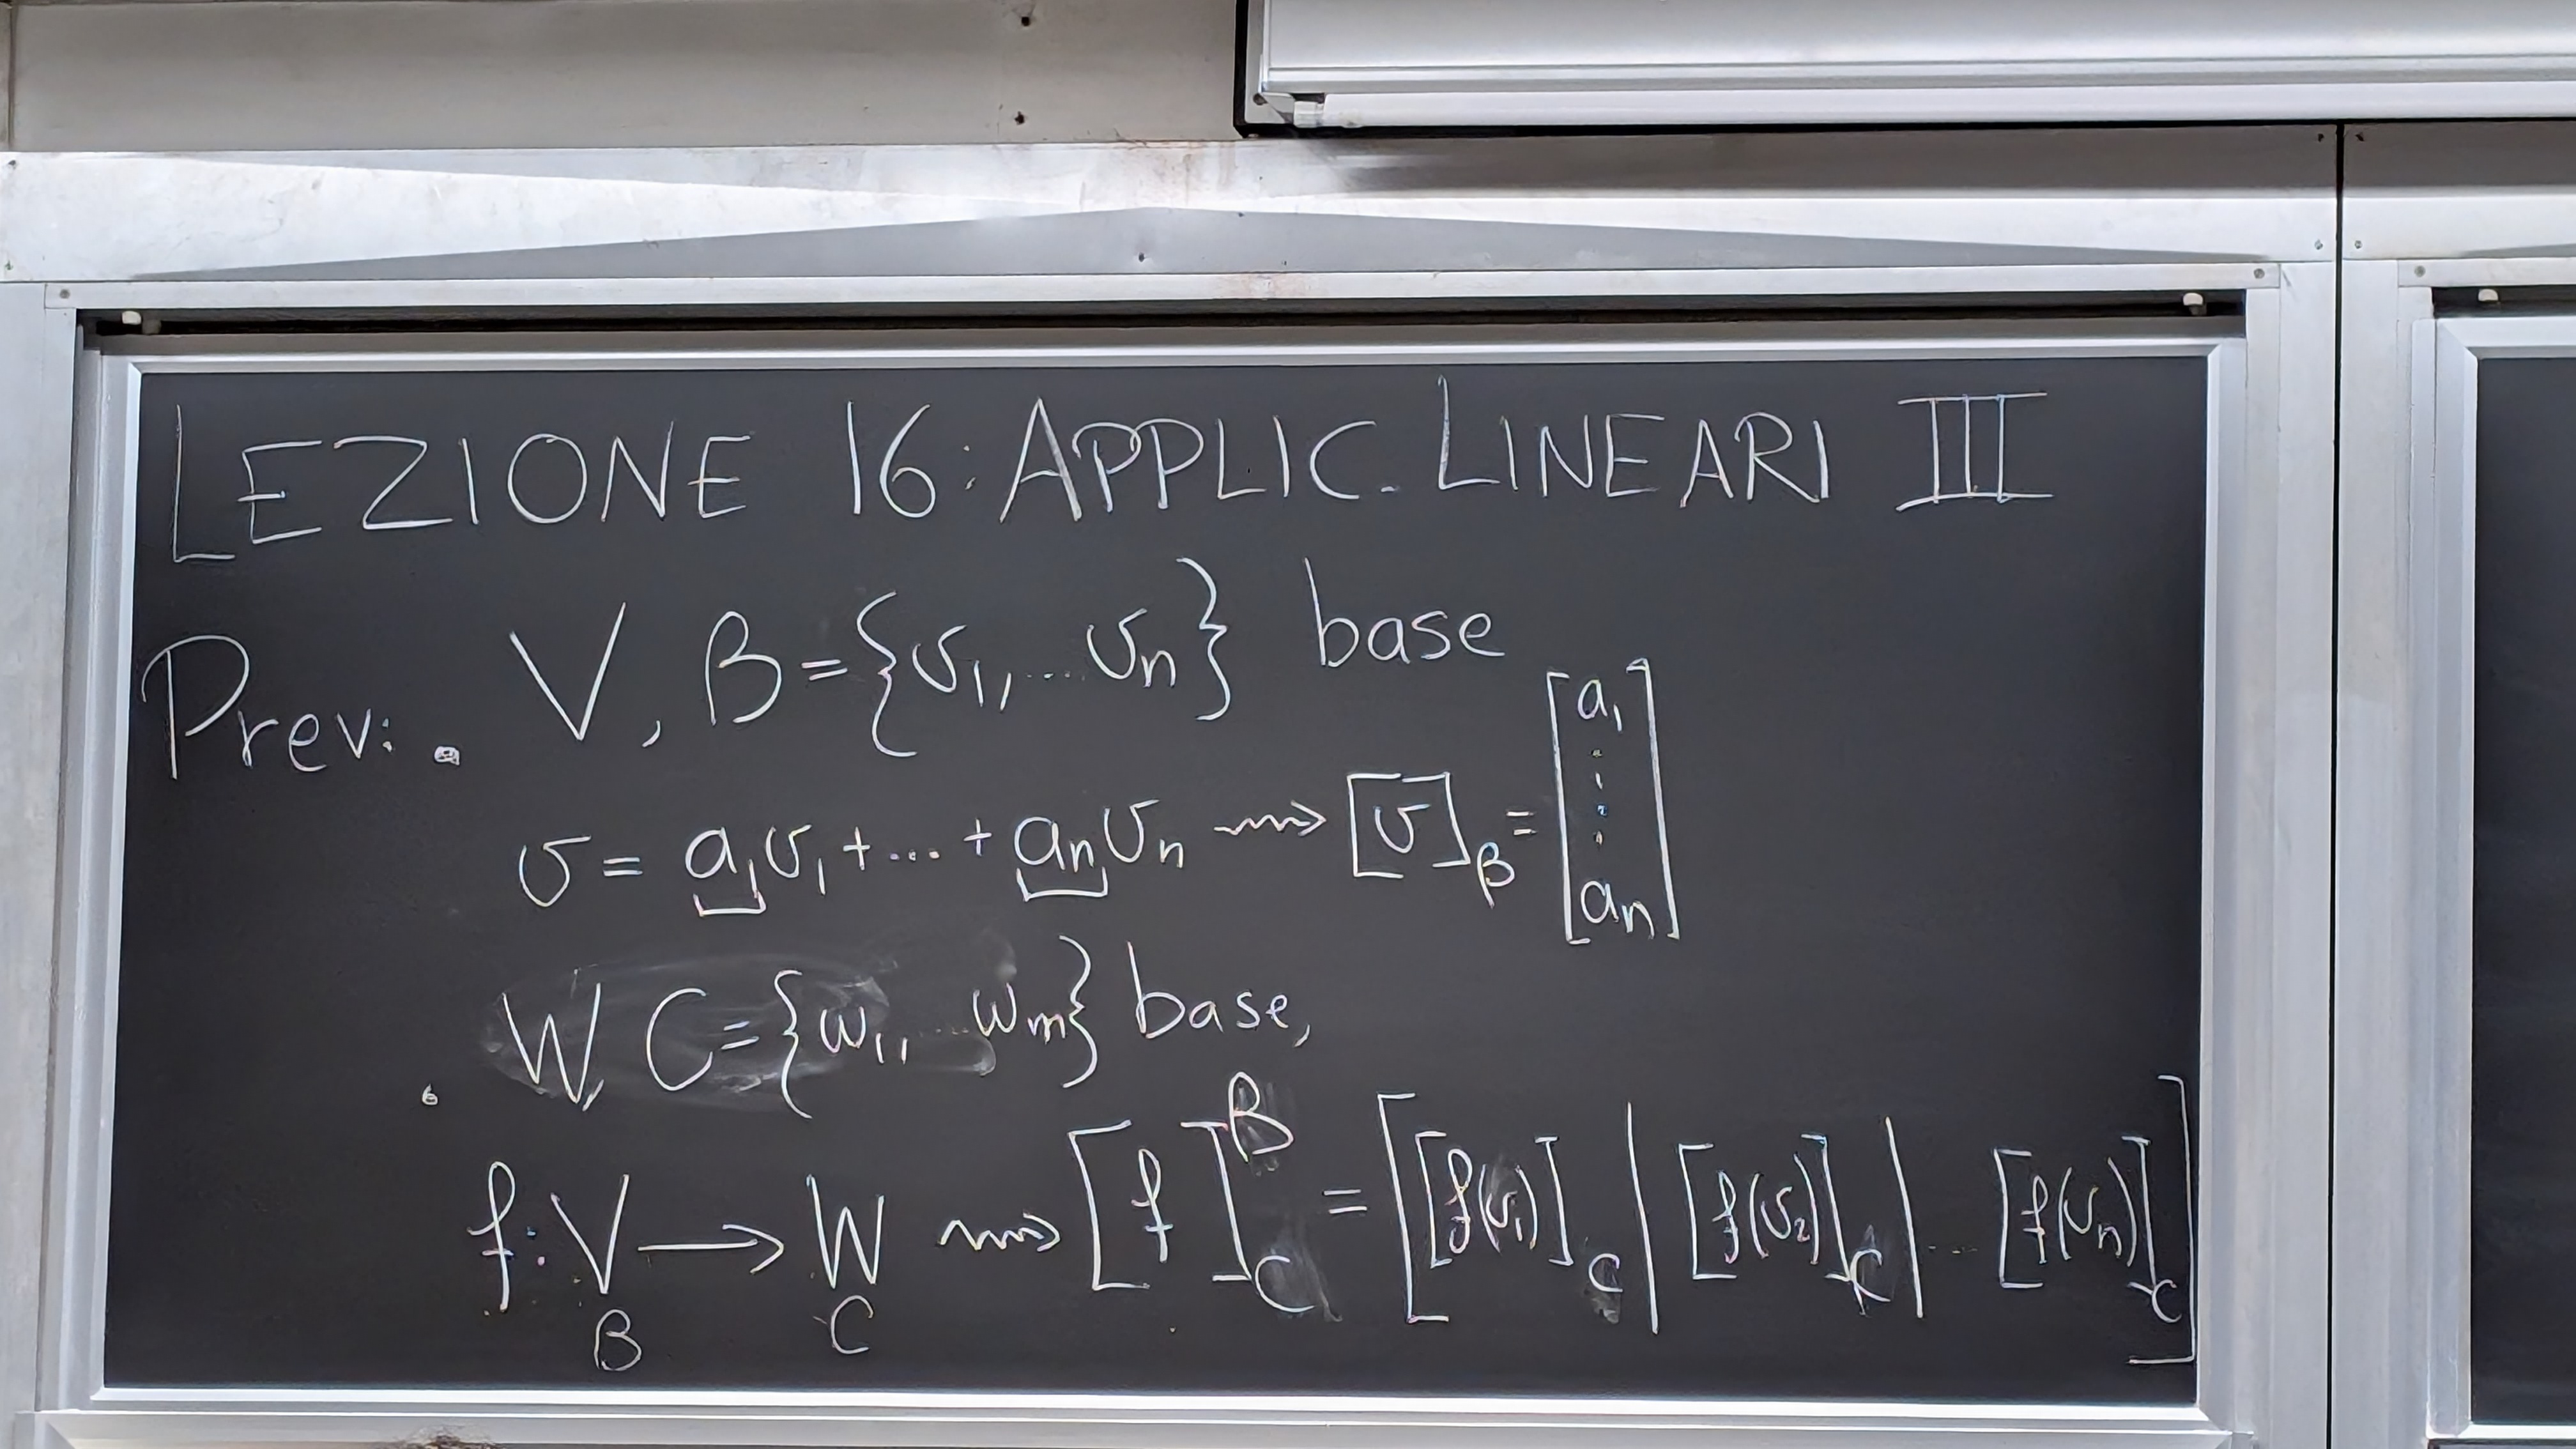 LEZIONE 16: APPLIC. LINEARI III
Prev: . V, B={v₁,....vₙ} base
v = a₁v₁+...+aₙvₙ ⇝ [v]_B = [a₁ ⋮ aₙ]
. W, C={w₁,....wₘ} base,
f: V → W ⇝ [f]^B_C = [[f(v₁)]_C | [f(v₂)]_C | .... [f(vₙ)]_C]
B C